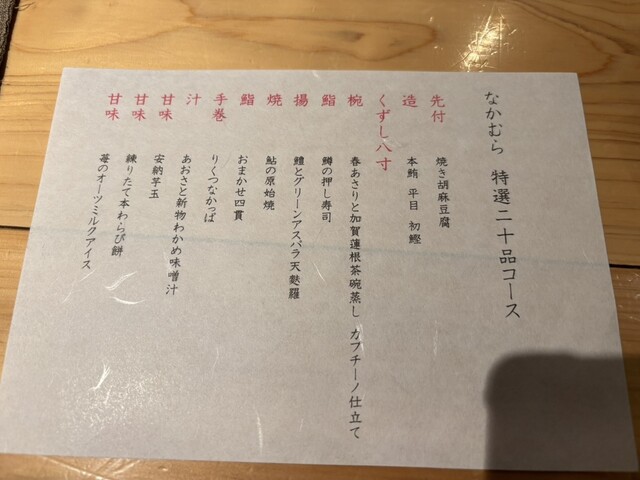 なかむら 特選二十品コース
先付 焼き胡麻豆腐
造 本鮪 平目 初鰹
くずし八寸
椀 春あさりと加賀蓮根茶碗蒸し カプチーノ仕立て
鮨 鱒の押し寿司
揚 鱧とグリーンアスパラ天麩羅
焼 鮎の原始焼
鮨 おまかせ四貫
手巻 りくつなかっぱ
汁 あおさと新物わかめ味噌汁
甘味 安納芋玉
甘味 練りたて本わらび餅
甘味 苺のオーツミルクアイス